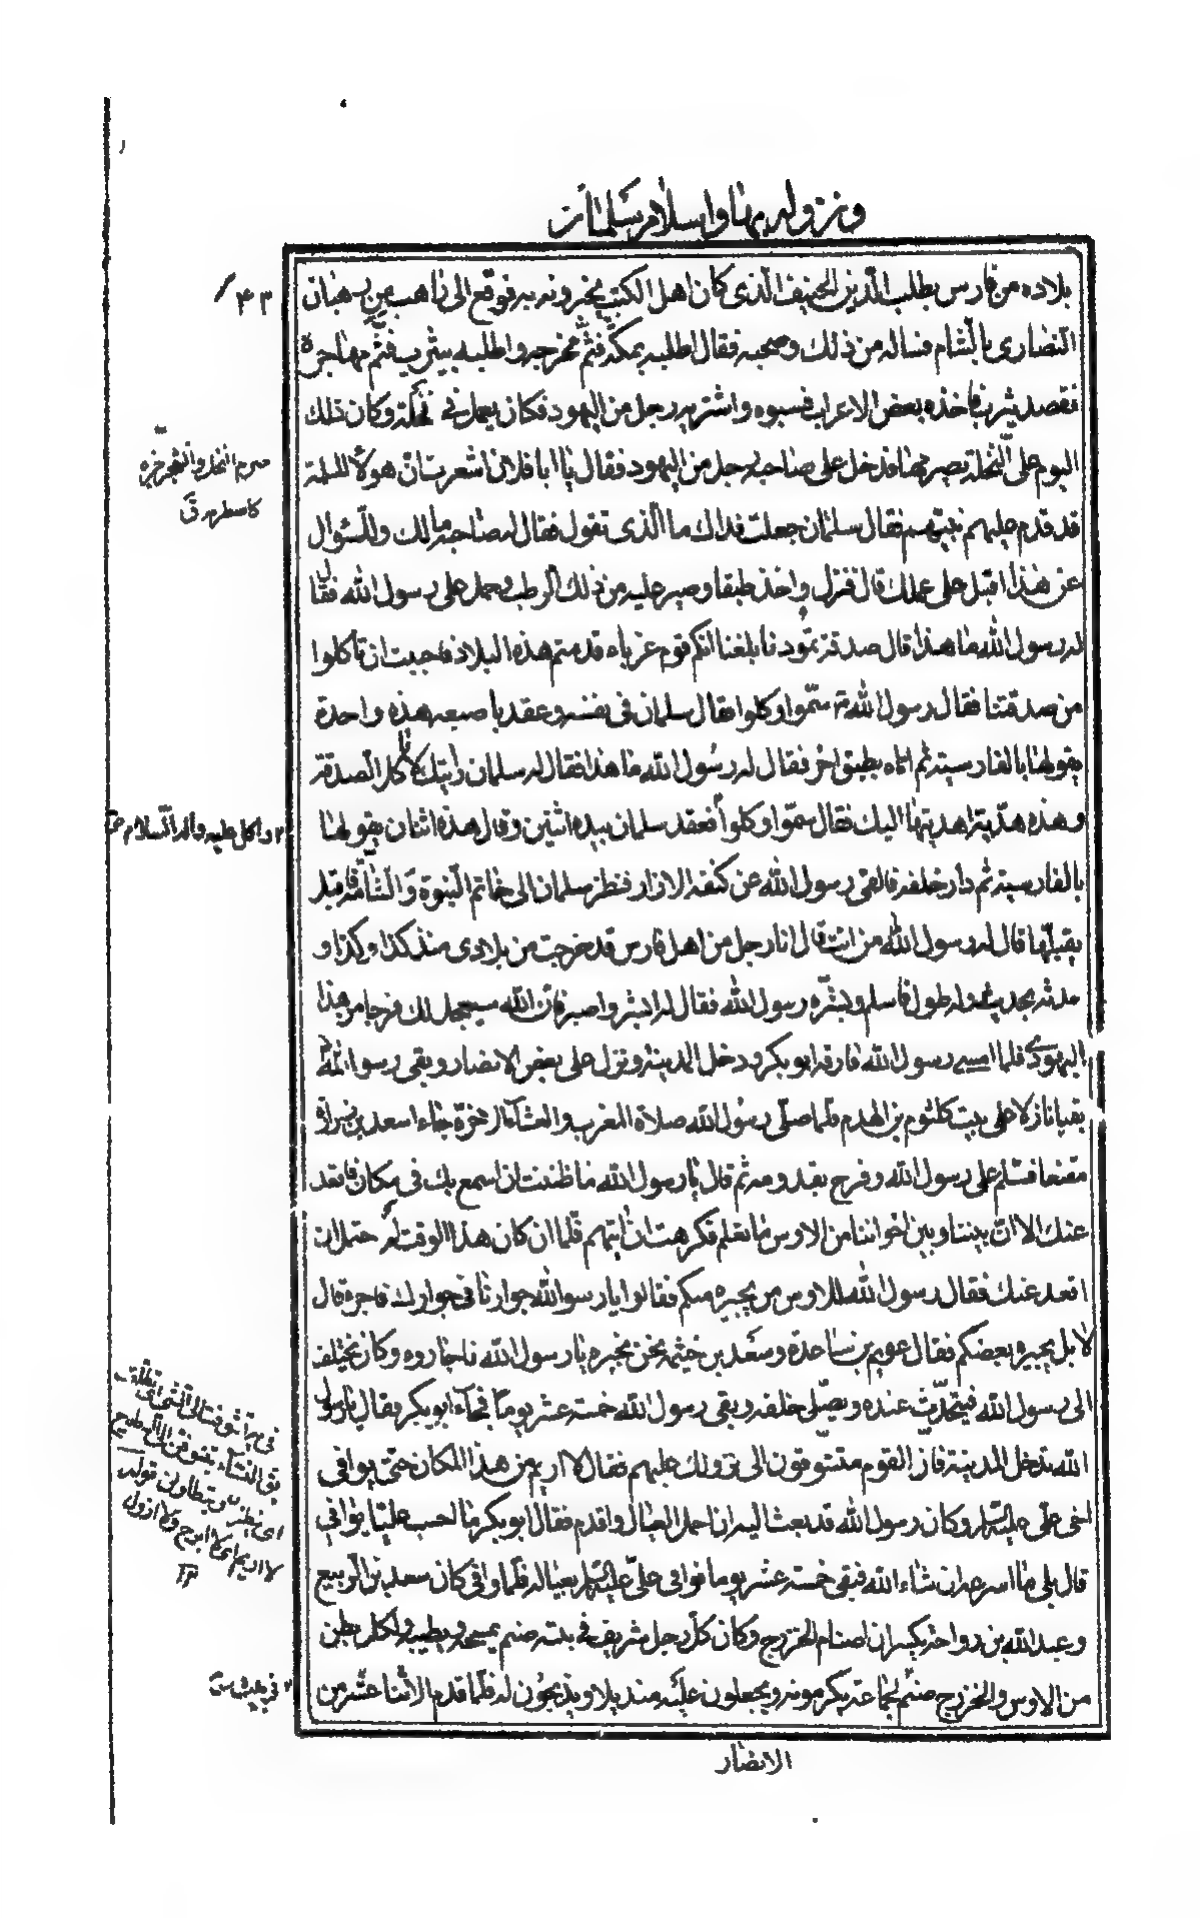 ونزوله بها واسلام سلمان
۴۳
بلاده من فارس يطلب الدّين الحنيف الّذى كان اهل الكتب يخبرونه به فوقع الى راهب من رهبان
النّصارى بالشام فساله من ذلك وصحبه فقال اطلبه بمكّة فثمّ مخرجه واطلبه بيثرب فثمّ مهاجرة
فقصد يثرب فاخذه بعض الاعراب فسبوه واشتريه رجل من اليهود فكان يعمل فى نخله وكان ذلك
اليوم على النّخلة يصرمها فدخل على صاحبه رجل من اليهود فقال يا ابا فلان اشعرت انّ هولاء المسلمة
قد قدم عليهم نبيّهم فقال سلمان جعلت فداك ما الّذى تقول فقال له صاحبه مالك وللسّؤال
عن هذا اقبل على عملك قال فنزل واخذ طبقا وصير عليه من ذلك الرطب وحمل على رسول الله فقال
له رسول الله ما هذا قال صدقة تمورنا بلغنا انّكم قوم غرباء قدمتم هذه البلاد فاحببت ان تاكلوا
من صدقتنا فقال رسول الله سمّوا وكلوا فقال سلمان فى نفسه وعقد باصبعه هذه واحدة
يقولها بالفارسيته ثم اتاه بطبق اخر فقال له رسول الله ما هذا فقال له سلمان رايتك لا تاكل الصّدقة
وهذه هديّة اهديتها اليك فقال سمّوا وكلوا فعقد سلمان بيده اثنين وقال هذه اثنان يقولها
بالفارسية ثم دار خلفه فالقى رسول الله عن كتفه الازار فنظر سلمان الى خاتم النّبوة والشّامة فاقبل
يقبّلها قال له رسول الله من انت قال انا رجل من اهل فارس قد خرجت من بلادى منذ كذا وكذا و
حدّثه بحديثه وله طول فاسلم وبشّره رسول الله فقال له ابشر واصبر فانّ الله سيجعل لك فرجا من هذا
اليهودى فلما امسى رسول الله فارقه ابو بكر ودخل المدينة ونزل على بعض الانصار وبقى رسول الله
بقبا نازلا على بيت كلثوم بن الهدم فلما صلّى رسول الله صلاة المغرب والعشاء الاخرة جاء اسعد بن زرارة
مقنعا فسلّم على رسول الله وفرح بقدومه ثم قال يا رسول الله ما ظننت ان اسمع بك فى مكان فاقعد
عنك الّا انّ بيننا وبين اخواننا من الاوس ما تعلم فكرهت ان آتيهم فلما ان كان هذا الوقت لم احتمل ان
اقعد عنك فقال رسول الله للاوس من يجيره منكم فقالوا يا رسول الله جوارنا فى جوارك فاجره قال
لا بل يجيره بعضكم فقال عويم بن ساعدة وسعد بن خيثمه نحن نجيره يا رسول الله فاجاروه وكان يختلف
الى رسول الله فيتحدّث عنده ويصلّى خلفه وبقى رسول الله خمسة عشر يوما فجاءه ابو بكر فقال يا رسول
الله تدخل المدينة فانّ القوم متشوقون الى نزولك عليهم فقال لا اريم من هذا المكان حتى يوافى
اخى علىّ عليه السّلم وكان رسول الله قد بعث اليه ان احمل العيال واقدم فقال ابو بكر ما احسب عليّا يوافى
قال بلى ما اسرعه ان شاء الله فبقى خمسة عشر يوما فوافى علىّ عليه السّلم بعياله فلمّا وافى كان سعد بن الرّبيع
وعبد الله بن رواحة يكسران اصنام الخزرج وكان كلّ رجل شريف فى بيته صنم يمسحه ويطيبه ولكل بطن
من الاوس والخزرج صنم لجماعة يكرمونه ويجعلون عليه منديلا ويذبحون له فلمّا قدم الاثنا عشر من
الانصار
صرم النخل والشجر جزه
كاصطرمه ق
واكل عليه واله السّلام
لا اريم اى لا ابرح ولا ازول
فى بيته